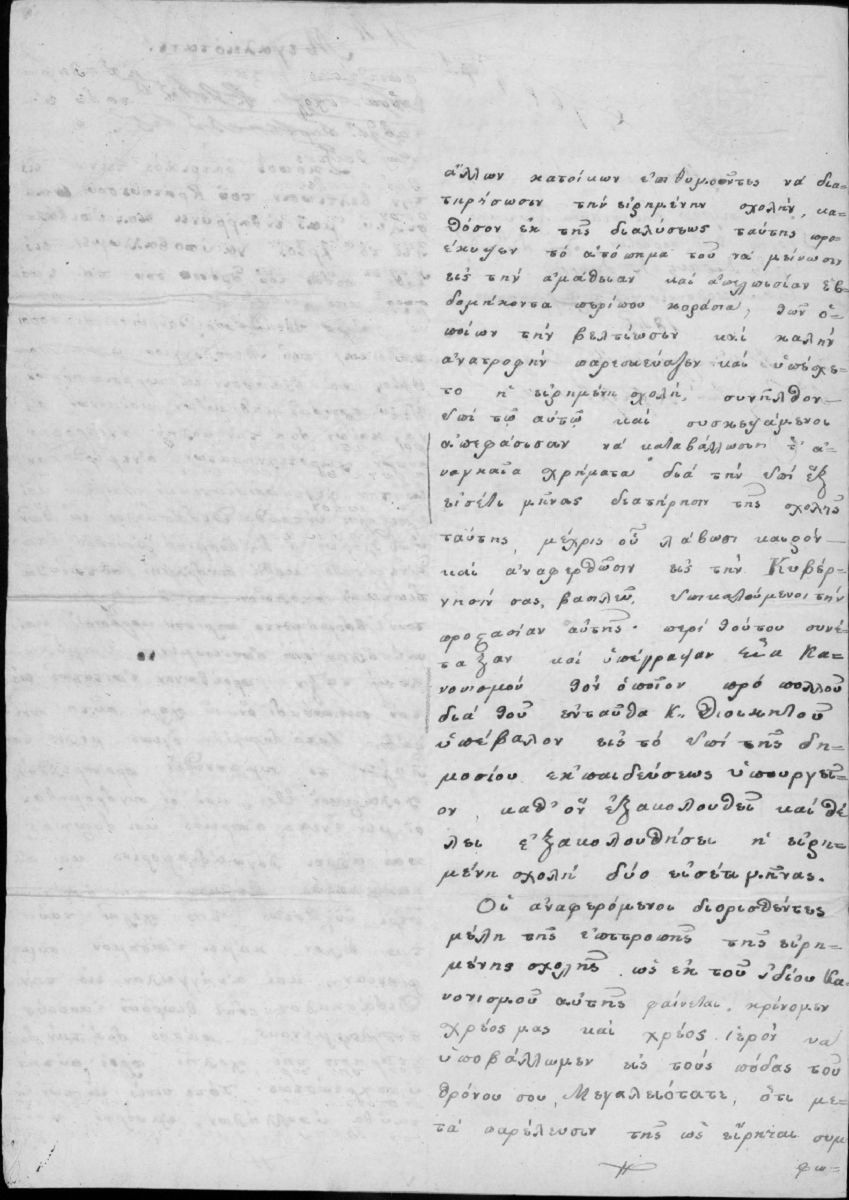 ἄλλων κατοίκων ἐπιθυμοῦντες νὰ δια-
τηρήσωσιν τὴν εἰρημένην σχολήν, κα-
θόσον ἐκ τῆς διαλύσεως ταύτης προ-
έκυψεν τὸ ἀτόπημα τοῦ νὰ μείνωσιν
εἰς τὴν ἀμάθειαν καὶ ἀπελπισίαν ἑβ-
δομήκοντα περίπου κοράσια, τῶν ὁ-
ποίων τὴν βελτίωσιν καὶ καλὴν
ἀνατροφὴν παρεσκεύαζεν καὶ ὑπέσχε-
το ἡ εἰρημένη σχολή, συνῆλθον
ἐπὶ τῷ αὐτῷ καὶ συσκεψάμενοι
ἀπεφάσισαν νὰ καταβάλλωσι τ' ἀ-
ναγκαῖα χρήματα διὰ τὴν ἐπὶ ἓξ
εἰσέτι μῆνας διατήρησιν τῆς σχολῆς
ταύτης, μέχρις οὗ λάβωσι καιρὸν
καὶ ἀναφερθῶσιν εἰς τὴν Κυβέρ-
νησίν σας, βασιλεῦ, ἐπικαλούμενοι τὴν
προστασίαν αὐτῆς· περὶ τούτου συνέ-
ταξαν καὶ ὑπέγραψαν ἕνα Κα-
νονισμόν τὸν ὁποῖον πρὸ πολλοῦ
διὰ τοῦ ἐνταῦθα Κ. Διοικητοῦ
ὑπέβαλον εἰς τὸ ἐπὶ τῆς δη-
μοσίου ἐκπαιδεύσεως ὑπουργεῖ-
ον, καθ' ὃν ἐξακολουθεῖ καὶ θέ-
λει ἐξακολουθήσει ἡ εἰρη-
μένη σχολὴ δύο εἰσέτι μῆνας.
Οἱ ἀναφερόμενοι διορισθέντες
μέλη τῆς ἐπιτροπῆς τῆς εἰρη-
μένης σχολῆς ὡς ἐκ τοῦ ἰδίου Κα-
νονισμοῦ αὐτῆς φαίνεται, κρίνομεν
χρέος μας καὶ χρέος ἱερὸν νὰ
ὑποβάλλωμεν εἰς τοὺς πόδας τοῦ
θρόνου σου, Μεγαλειότατε, ὅτι με-
τὰ παρέλευσιν τῆς ὡς εἴρηται συμ
φω-